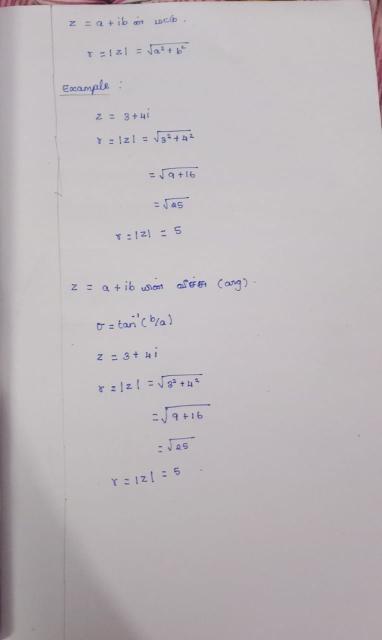 z = a + ib ன் மட்டு.
r = |z| = √a² + b²
Example :
z = 3+4i
r = |z| = √3² + 4²
= √9+16
= √25
r = |z| = 5
z = a + ib யின் வீச்சு (arg).
σ = tan⁻¹ (b/a)
z = 3 + 4i
r = |z| = √3² + 4²
= √9 + 16
= √25
r = |z| = 5.